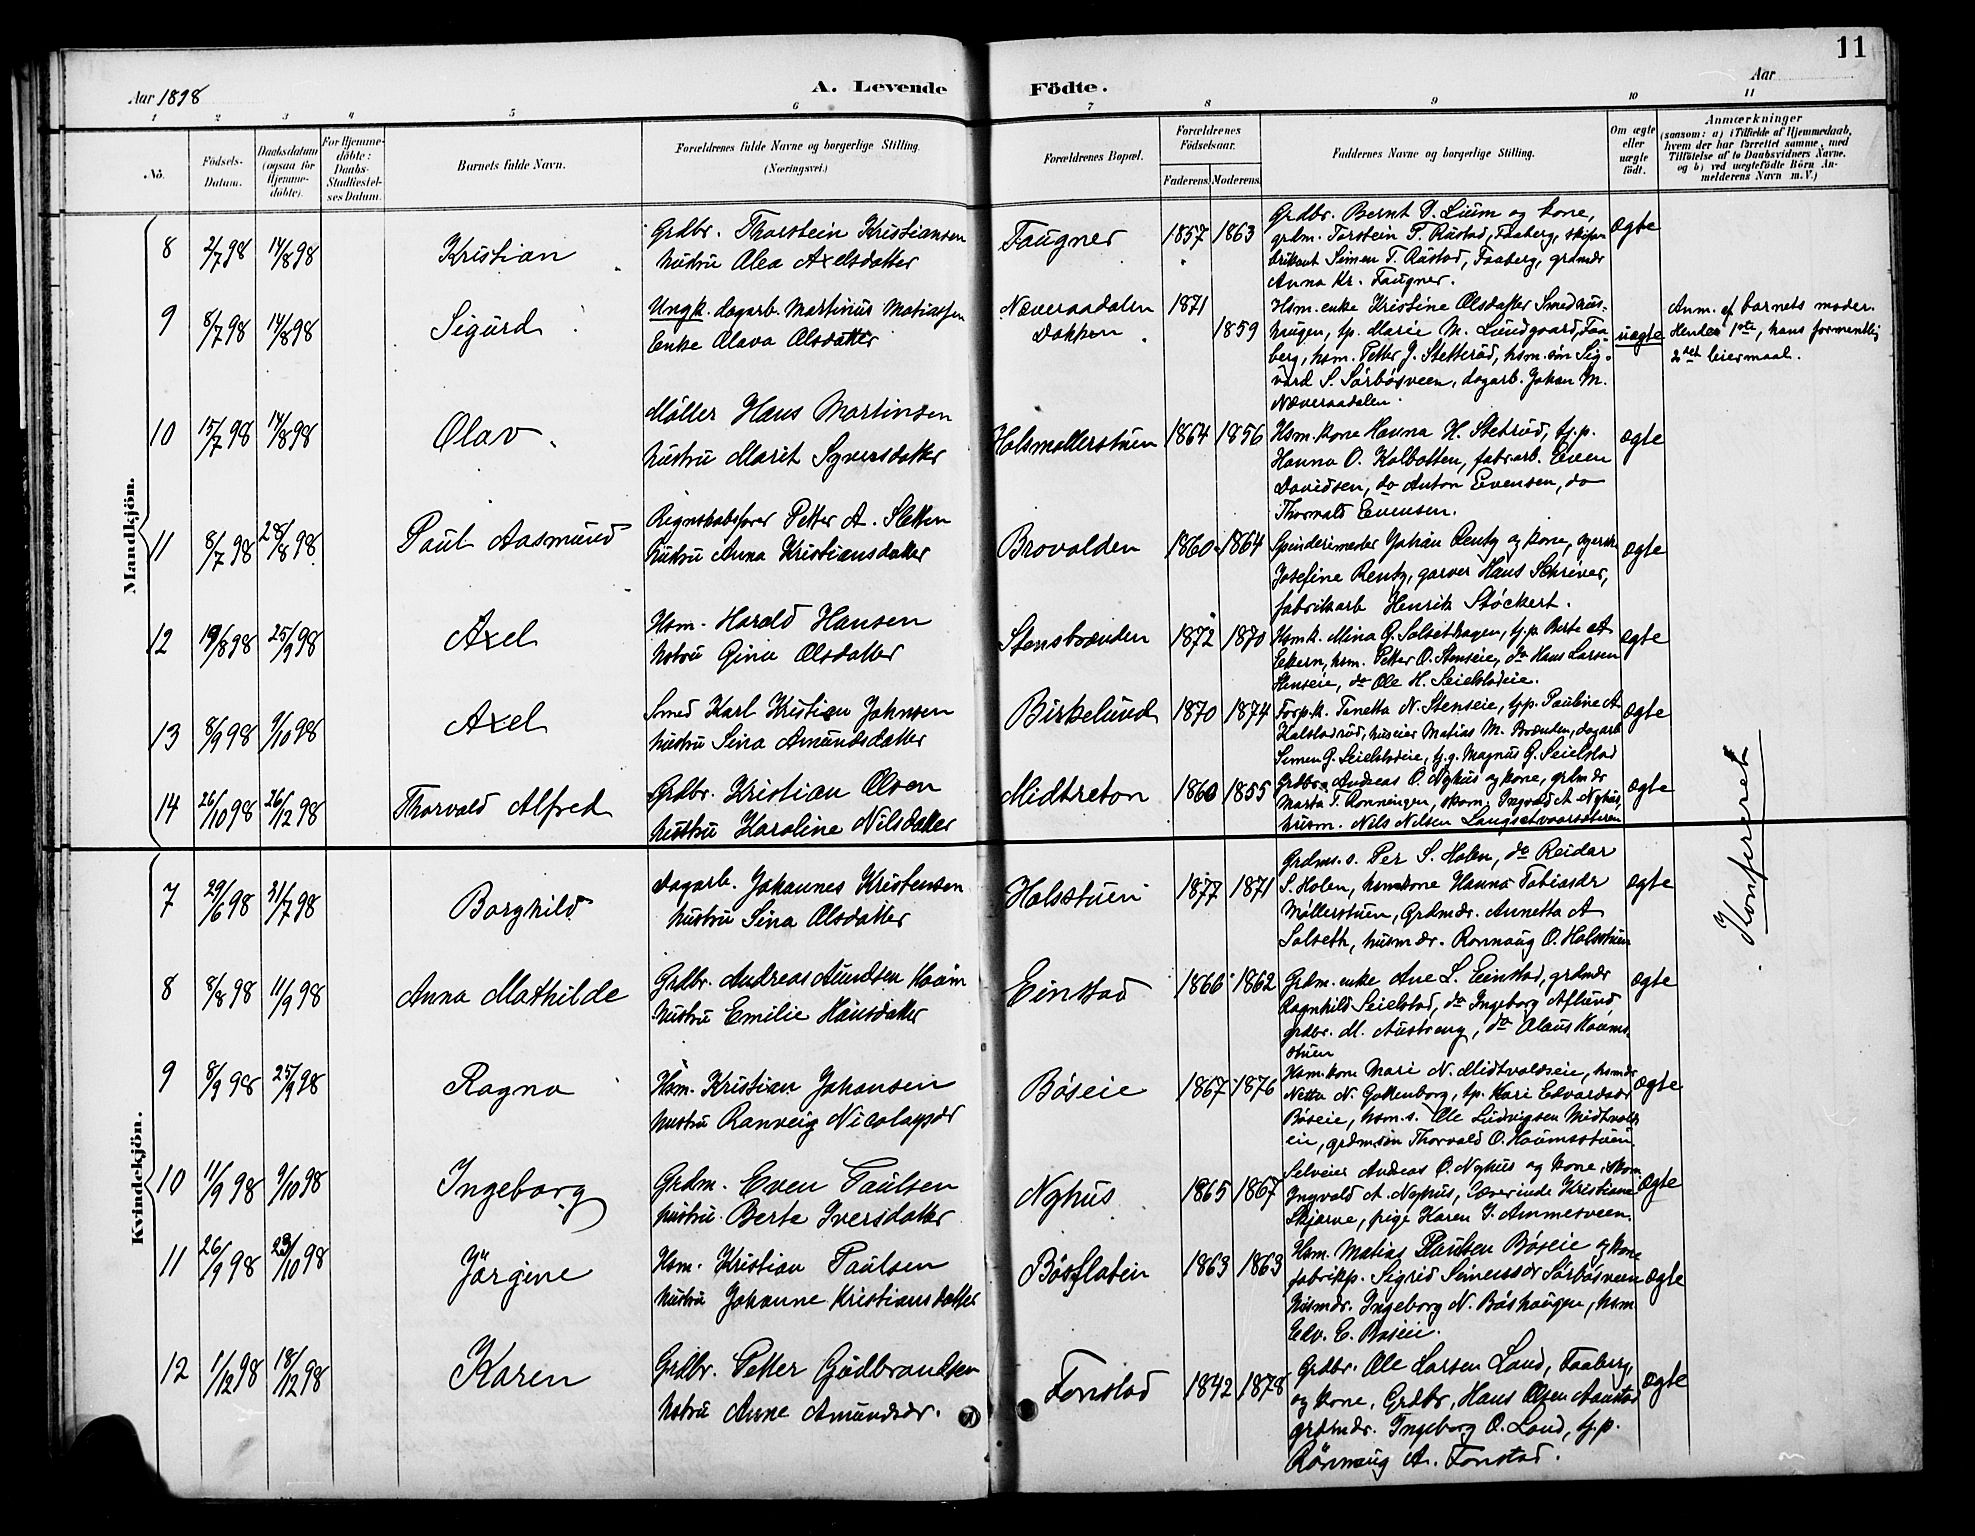 11
Aar 1898
A. Levende Födte.
Aar
1 2 3 4 5 6 7 8 9 10 11
No.
Födsels-Datum.
Daabsdatum (ogsaa for Hjemme-döbte).
For Hjemme-döbte: Daabs-Stadfæstel-ses Datum.
Barnets fulde Navn.
Forældrenes fulde Navne og borgerlige Stilling. (Næringsvei.)
Forældrenes Bopæl.
Forældrenes Födselsaar.
Faderens. Moderens.
Faddernes Navne og borgerlige Stilling.
Om ægte eller uægte födt.
Anmærkninger
(saasom: a) i Tilfælde af Hjemmedaab, hvem der har forrettet samme, med Tilföielse af to Daabsvidners Navne, og b) ved uægtefödte Börn An-melderens Navn m. V.)
Mandkjön.
8 2/7 98 14/8 98 Kristian
Grdbr. Thorstein Kristiansen
hustru Olea Axelsdatter
Faugner 1857 1863
Grdbr. Bernt D. Lium og kone,
grdm. Torstein T. Rustad, Faaberg, skifa
brikant Simen T. Rustad, Faaberg, grdmdr
Anna Kr. Faugner.
ægte
9 8/7 98 14/8 98 Sigurd
Ungk. dagarb. Martinus Matiassen
Enke Olava Olsdatter
Næveraadalen
Dokken
1871
1859
Hsm. enke Kristine Olsdatter Smedhus-
haugen, tp. Marie M. Lundgaard, Faa-
berg, hsm. Petter J. Stetteröd, hsm. sön Sig-
vard S. Sörbösveen, dagarb. Johan M.
Næveraadalen.
uægte
Anm. af barnets moder.
Hendes 1ste, hans formentlig
2det leiermaal.
10 15/7 98 14/8 98 Olav.
Möller Hans Martinsen
hustru Marit Syversdatter
Holsmøllerstuen 1864 1856
Hsm. kone Hanna H. Stetröd, tj.p.
Hanna O. Kalbotten, fabrarb. Even
Davidsen, do Anton Evensen, do
Thorvald Evensen.
ægte
11 8/7 98 28/8 98 Paul Aasmund
Regnskabsförer Petter A. Sletten
hustru Anna Kristiansdatter
Brovolden 1860 1864
Spinderimester Johan Rentz og kone,
Josefine Rentz, garver Hans Schriver,
fabrikarb Henrik Støckert.
ægte
12 19/8 98 25/9 98 Axel
Hsm. Harald Hansen
hstru Gina Olsdatter
Stensbrænden 1872 1870
Hsmk. Mina G. Solsethagen, tj.p. Berte A
Ekern, hsm. Petter O. Stenseie, do Hans Larsen
Stenseie, do Ole H. Seielstadeie.
ægte
13 8/9 98 9/10 98 Axel
Smed Karl Kristian Johnsen
hustru Sina Amundsdatter
Birkelund 1870 1874
Forp.k. Tanetta N. Stenseie, tj.p. Pauline A
Kalstadröd, huseier Matias M. Brænden, dagarb
Simen G. Seielstadeie, tj.g. Magnus G. Seielstad
ægte
14 26/10 98 26/12 98 Thorvald Alfred
Grdbr. Kristian Olsen
hustru Karoline Nilsdatter
Midtreton 1860 1855
Grdbr. Andreas O. Nyhus og kone, grdmdr
Marta T. Rønningen, skom. Ingvald A Nyhus,
husm. Nils Nilsen Langsetvaarsæteren
ægte
Konfereret
Kvindekjön.
7 29/6 98 31/7 98 Borghild
Dagarb. Johannes Kristensen
hustru Sina Olsdatter
Holsstuen 1877 1871
Grdms. s. Per S. Holen, do Reidar
S. Holen, hsmskone Hanna Tobiasdr
Møllerstuen, Grdmdr. Annetta A
Solseth, husmdr. Rønnaug O. Holsstuen
ægte
8 8/8 98 11/9 98 Anna Mathilde
Grdbr. Andreas Amundsen Haam
hustru Emilie Hansdatter
Einstad 1866 1862
Grdm. enke Ane L. Einstad, grdmdr
Ragnhild Seielstad, do Ingeborg Aflund,
grdbr. M. Austreng, do Olaus Haams-
stuen
ægte
9 8/9 98 25/9 98 Ragna
Hsm. Kristian Johansen
hustru Ranveig Nicolaysdr
Böseie 1867 1876
Hsm. kone Mari N. Midtvoldseie, hsmdr
Netta N. Gullenborg, tp. Kari Edvardsdr
Böseie, hsm. s. Ole Ludvigsen Midtvolds
eie, grdmsön Thorvald O. Haamsstuen.
ægte
10 11/9 98 9/10 98 Ingeborg
Grdm. Even Paulsen
hustru Berte Iversdatter
Nyhus 1865 1867
Selveier Andreas O. Nyhus og kone, skom
Ingvald A. Nyhus, Lærerinde Kristiane
Skjærve, pige Karen J. Ammesveen.
ægte
11 26/9 98 23/10 98 Jörgine
Hsm. Kristian Paulsen
hustru Johanne Kristiansdatter
Bösflaten 1863 1863
Hsm. Matias Paulsen Böseie og kone
fabrikp. Sigrid Simensdr Sörbösveen
husmdr. Ingeborg N. Böshaugen, hsm
Edv. E. Böseie.
ægte
12 1/12 98 18/12 98 Karen
Grdbr. Petter Gudbrandsen
hstru Anne Amundsdr.
Fonstad 1842 1878
Grdbr. Ole Larsen Lund, Faaberg,
og kone, Grdbr, Hans Olsen Aanstad
grdmdr. Ingeborg O. Lund, tj.p.
Rönnaug A. Fonstad.
ægte